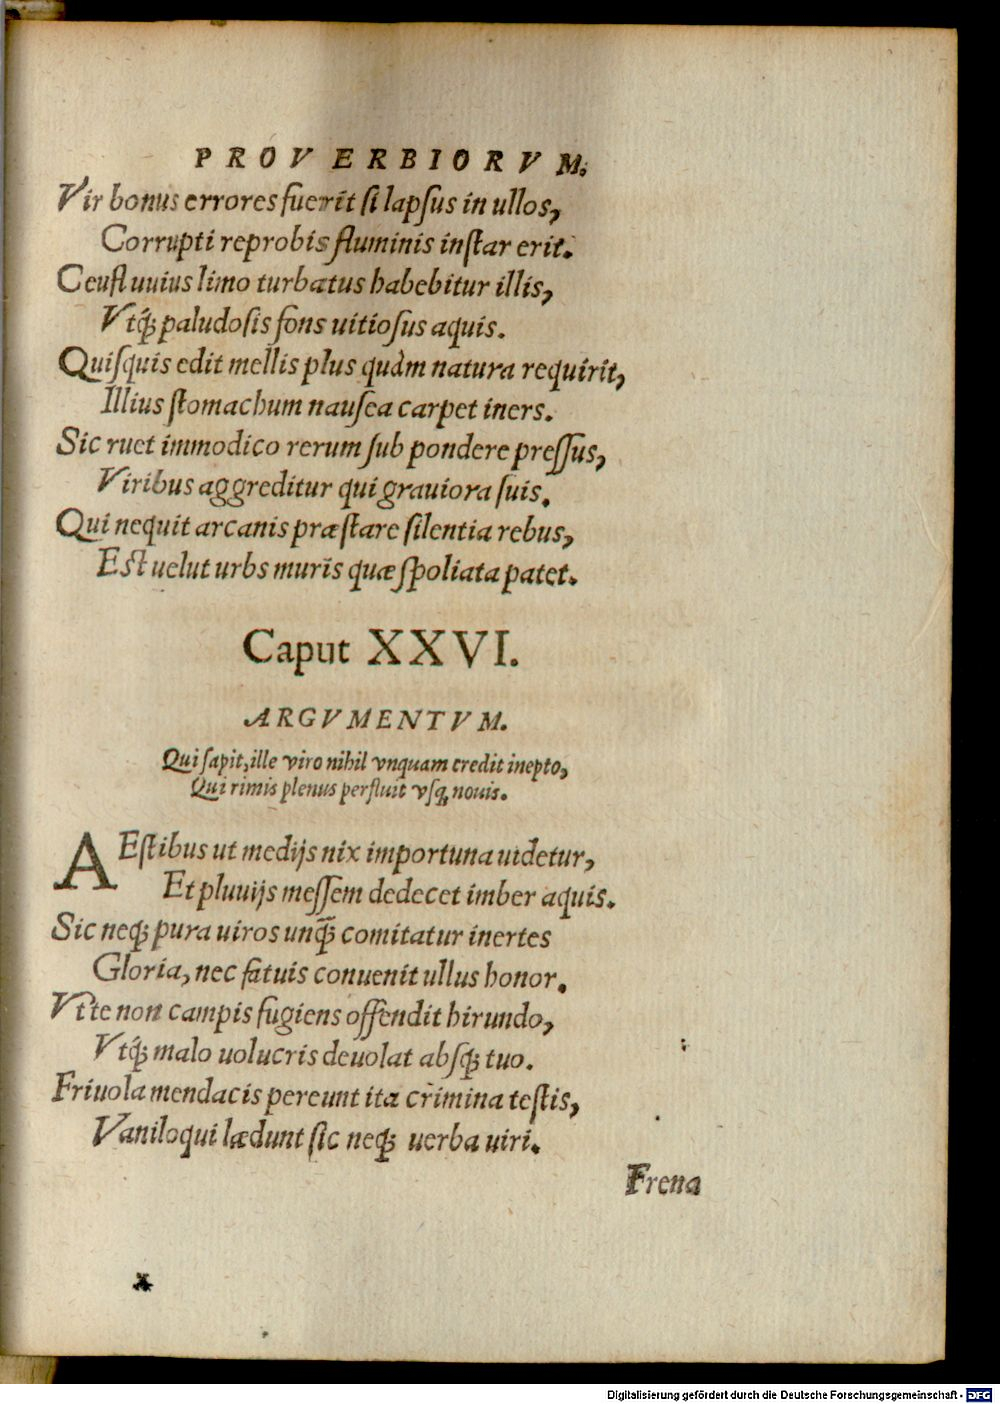 PROVERBIORVM.
Vir bonus errores fuerit si lapsus in ullos,
Corrupti reprobis fluminis instar erit.
Ceu fluuius limo turbatus habebitur illis,
Vtq́; paludosis fons uitiosus aquis.
Quisquis edit mellis plus quàm natura requirit,
Illius stomachum nausea carpet iners.
Sic ruet immodico rerum sub pondere pressus,
Viribus aggreditur qui grauiora suis.
Qui nequit arcanis præstare silentia rebus,
Est uelut urbs muris quæ spoliata patet.
Caput XXVI.
ARGVMENTVM.
Qui sapit, ille viro nihil vnquam credit inepto,
Qui rimis plenus perfluit vsq; nouis.
AEstibus ut medijs nix importuna uidetur,
Et pluuijs messem dedecet imber aquis.
Sic neq; pura uiros unq̃; comitatur inertes
Gloria, nec fatuis conuenit ullus honor.
Vt te non campis fugiens offendit hirundo,
Vtq́; malo uolucris deuolat absq; tuo.
Friuola mendacis pereunt ita crimina testis,
Vaniloqui lædunt sic neq; uerba uiri.
Frena
Digitalisierung gefördert durch die Deutsche Forschungsgemeinschaft - DFG